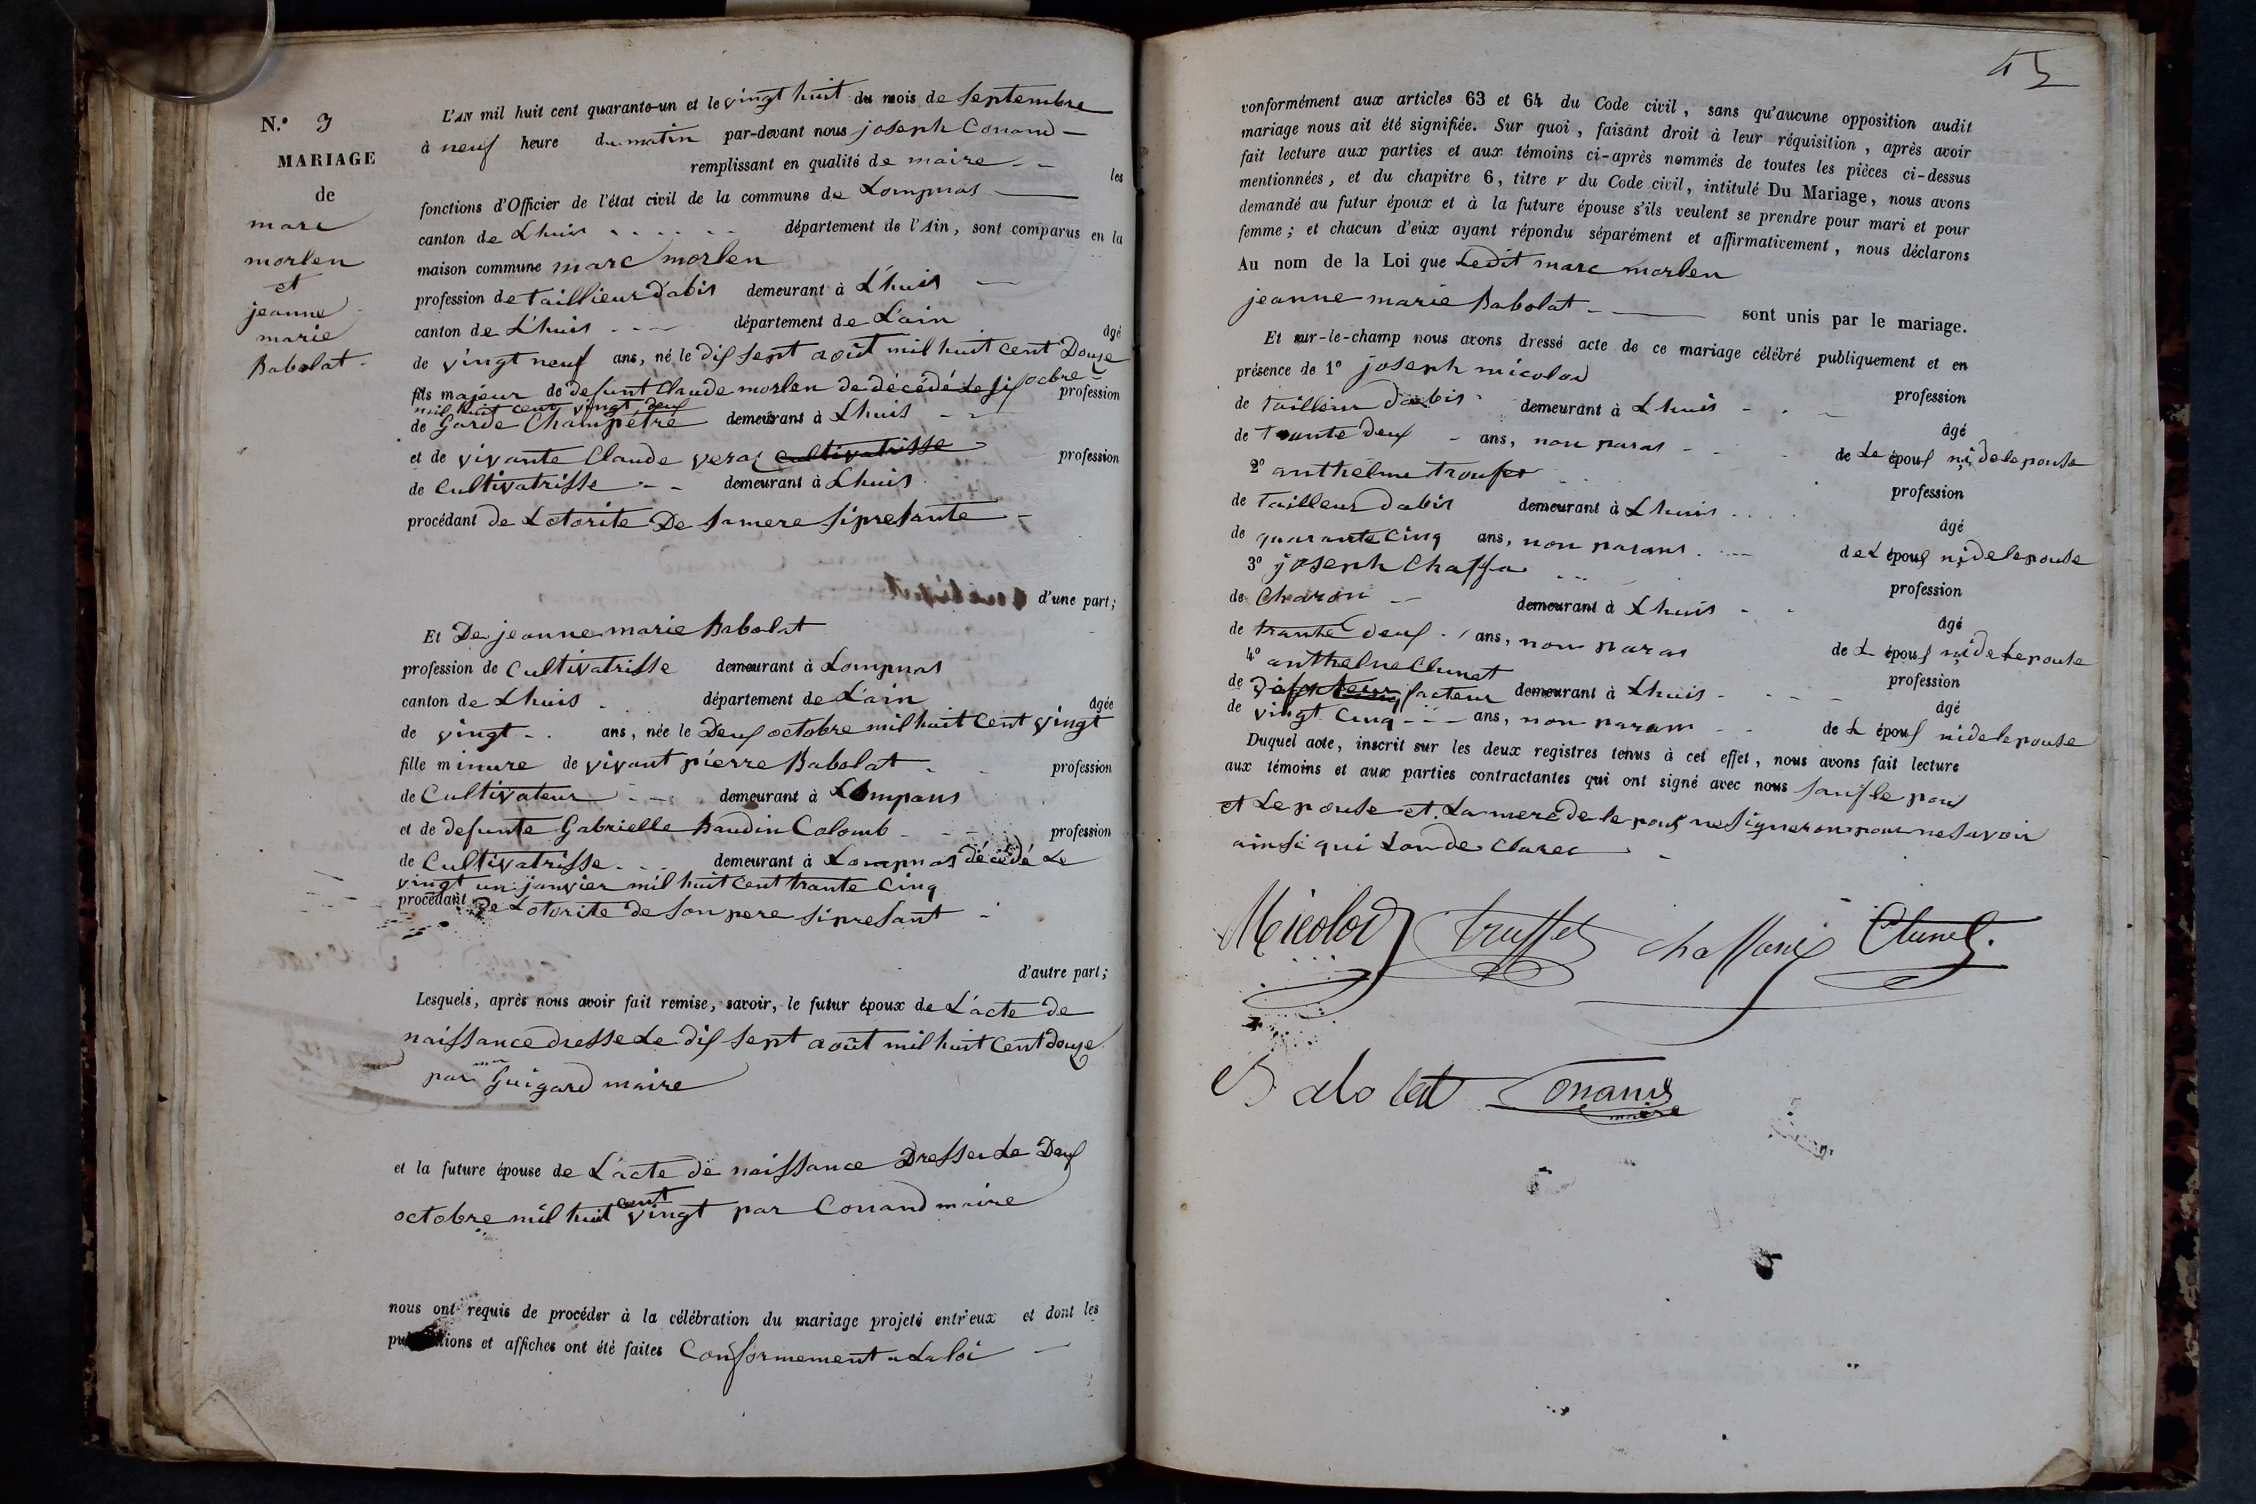 N.º 3
MARIAGE
de
marc
morlen
et
jeanne
marie
Babolat
L'AN mil huit cent quarante-un et le vingt huit du mois de Septembre
à neuf heure du matin par-devant nous joseph Conand
remplissant en qualité de maire les
fonctions d'Officier de l'état civil de la commune de Lompnas
canton de Lhuis département de l'Ain, sont comparus en la
maison commune marc morlen
profession de taillieur d'abis demeurant à L'huis
canton de L'huis département de L'ain âgé
de vingt neuf ans, né le dix sept août mil huit cent Douze
fils majeur de defunt Claude morlen de décédé le six ocbre profession
mil huit cent vingt deux
de Garde Champetre demeurant à Lhuis
et de vivante Claude veraz cultivatrisse profession
de Cultivatrisse demeurant à Lhuis
procédant de Lotorite De Samere Sipresante
d'une part;
Et De jeanne marie Babolat
profession de Cultivatrisse demeurant à Lompnas
canton de Lhuis département de L'ain âgée
de vingt ans, née le Deux octobre mil huit Cent vingt
fille minure de vivant pierre Babolat profession
de Cultivateur demeurant à Lompans
et de defunte Gabrielle Baudin Colomb profession
de Cultivatrisse demeurant à Lompnas décédé Le
vingt un janvier mil huit Cent trante Cinq
procédant de Lotorite de Son pere sipresant
d'autre part;
Lesquels, après nous avoir fait remise, savoir, le futur époux de L'acte de
naissance dresse Le dix Sept août mil huit Cent douze
par mr Guigard maire
et la future épouse de L'acte de naissance Dresser Le Deux
octobre mil huit cent vingt par Conand maire
nous ont requis de procéder à la célébration du mariage projeté entr'eux et dont les
publications et affiches ont été faites Conformement a La loi
45
conformément aux articles 63 et 64 du Code civil, sans qu'aucune opposition audit
mariage nous ait été signifiée. Sur quoi, faisant droit à leur réquisition, après avoir
fait lecture aux parties et aux témoins ci-après nommés de toutes les pièces ci-dessus
mentionnées, et du chapitre 6, titre v du Code civil, intitulé Du Mariage, nous avons
demandé au futur époux et à la future épouse s'ils veulent se prendre pour mari et pour
femme; et chacun d'eux ayant répondu séparément et affirmativement, nous déclarons
Au nom de la Loi que Ledit marc morlen
jeanne marie Babolat sont unis par le mariage.
Et sur-le-champ nous avons dressé acte de ce mariage célébré publiquement et en
présence de 1º joseph micolod
profession
de tailleur dabis demeurant à Lhuis âgé
de trante deux ans, non paras de Le époux ni de lepouse
2º anthelme troufet profession
de tailleur dabis demeurant à Lhuis âgé
de quarante Cinq ans, non parans de L époux ni de lepouse
3º joseph Chaffa profession
de Charon demeurant à Lhuis âgé
de trante deux ans, non paras de L époux ni de Lepouse
4º anthelme Clunet profession
de facteur demeurant à Lhuis âgé
de vingt Cinq ans, non param de L époux ni de lepouse
Duquel acte, inscrit sur les deux registres tenus à cet effet, nous avons fait lecture
aux témoins et aux parties contractantes qui ont signé avec nous Sauf le poux
et Lepouse et La mere de le poux ne Signeron pour ne Savoir
ainsi qui Lon de Clarec
Micolod truffet chaffani Clunet.
Babolat Conand
maire